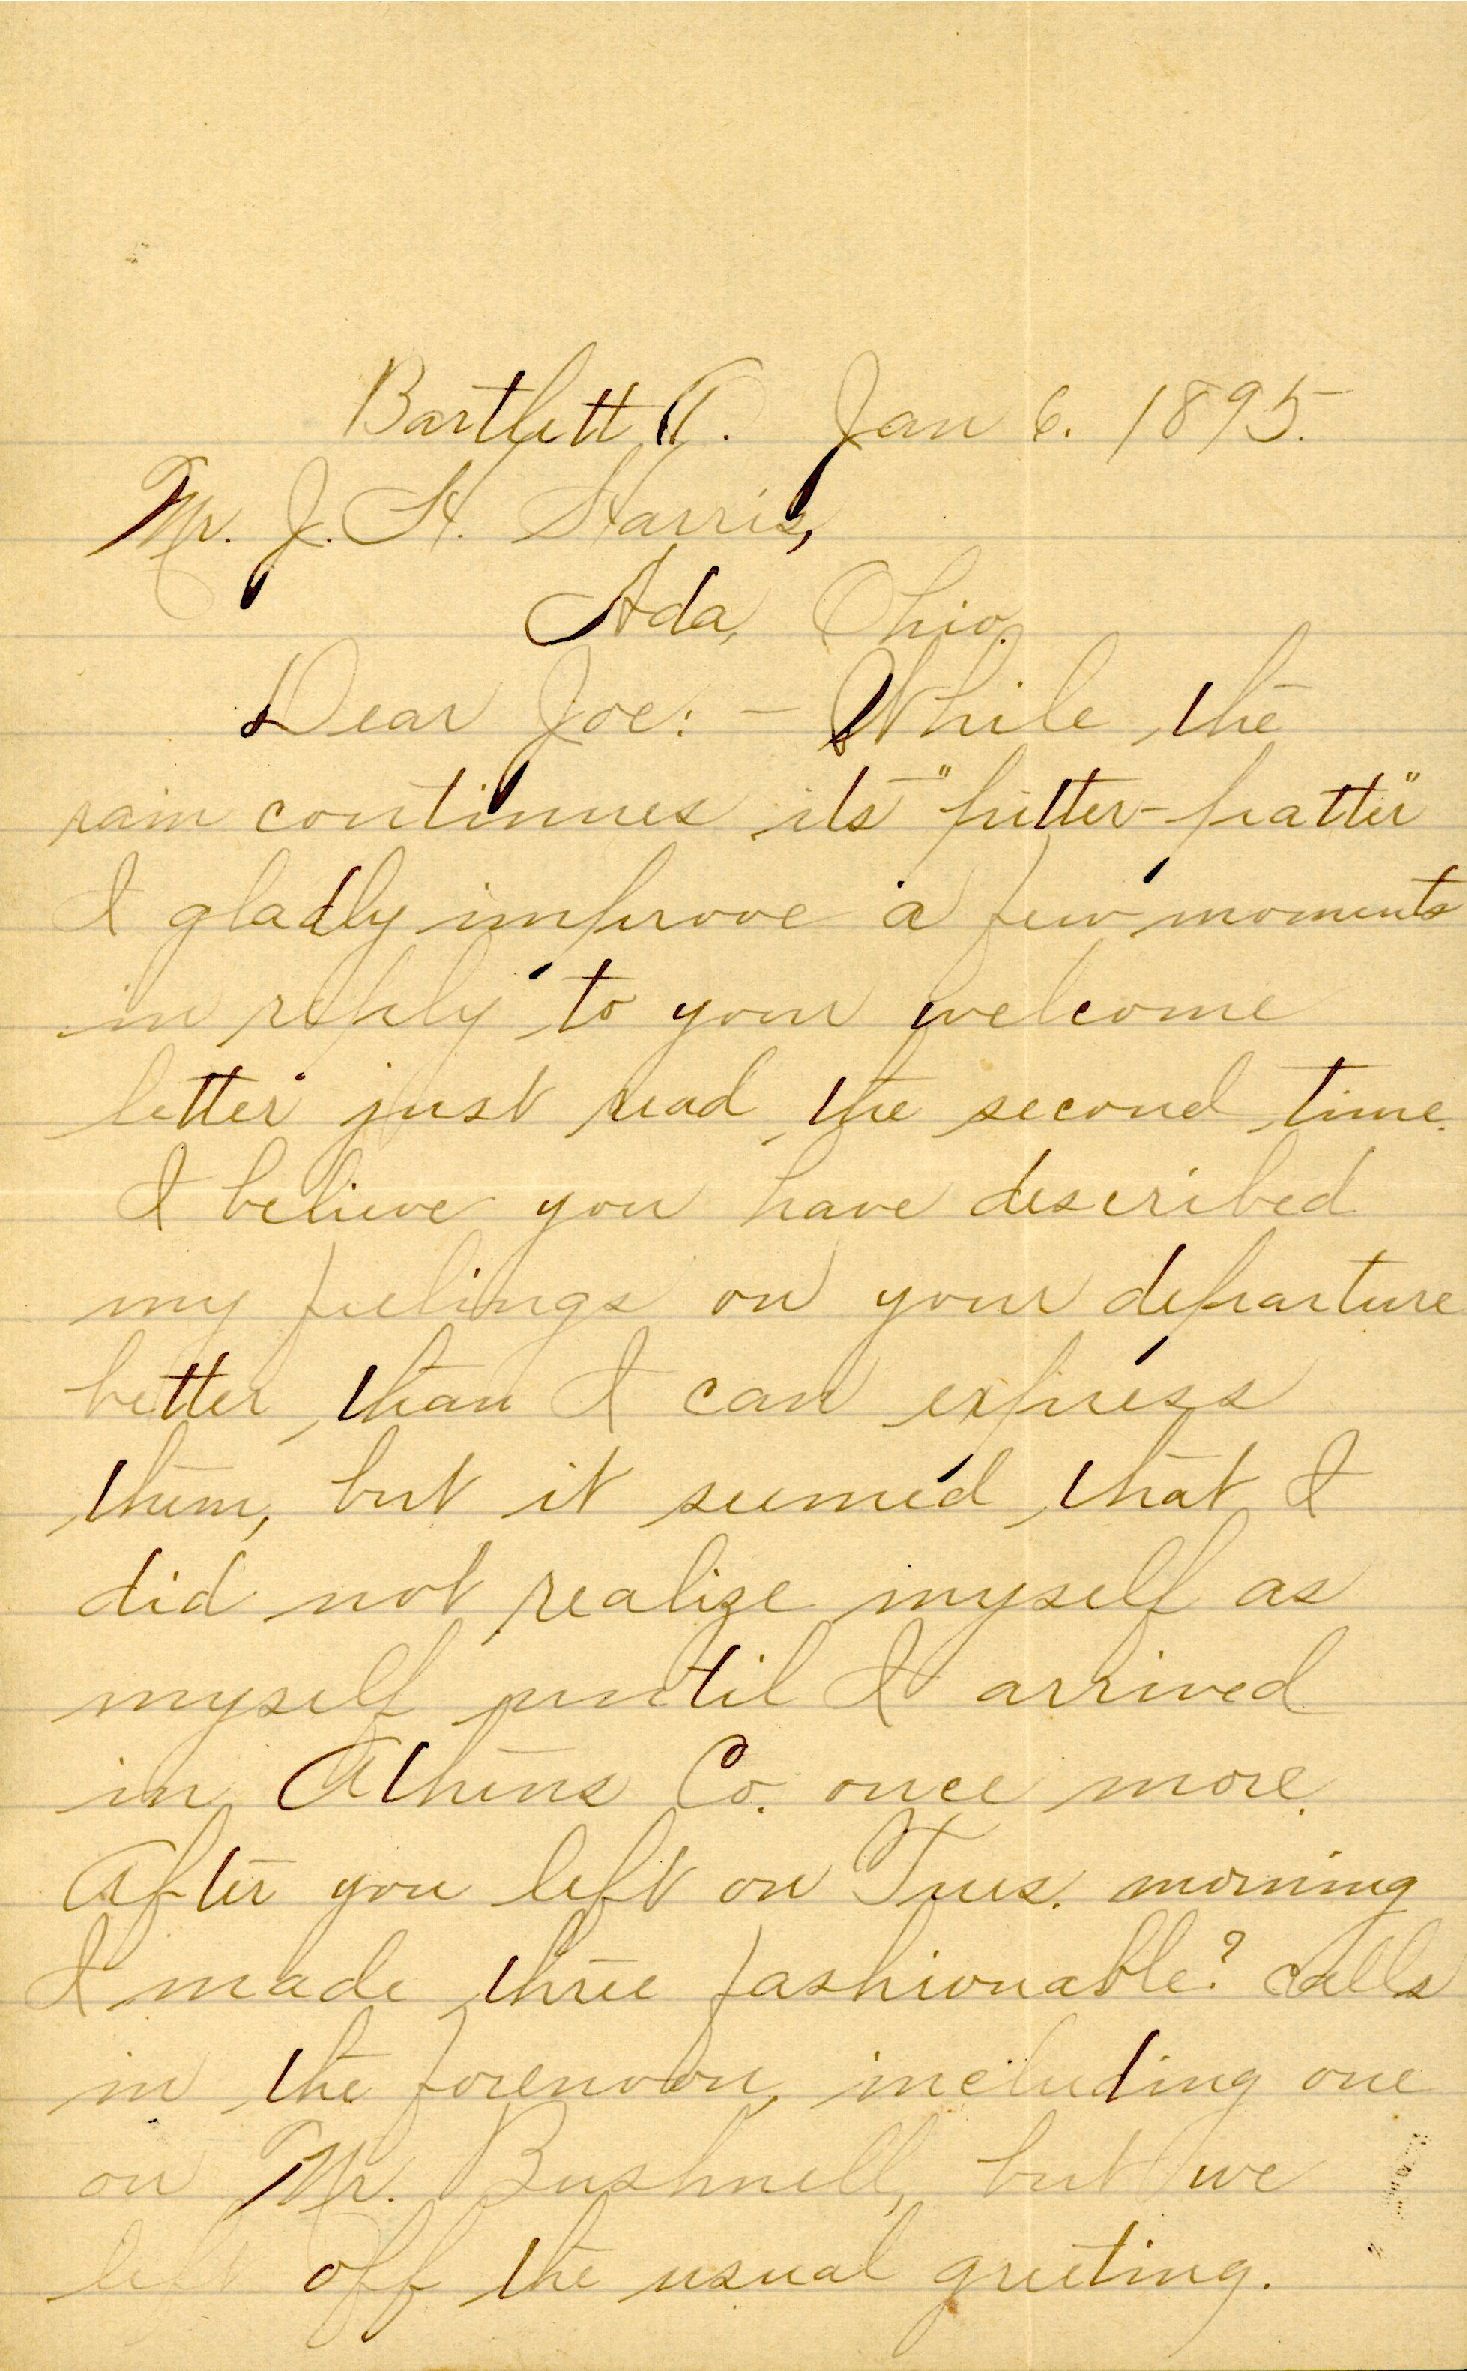 Bartlett O. Jan 6. 1895.
Mr. J. H. Harris,
Ada, Ohio.
Dear Joe: – While the
rain continues its "pitter-patter"
I gladly improve a few moments
in reply to your welcome
letter just read the second time.
I believe you have described
my feelings on your departure
better than I can express
them, but it seemed that I
did not realize myself as
myself until I arrived
in Athens Co. once more.
After you left on Tues. morning
I made three fashionable? calls
in the forenoon, including one
on Mr. Bushnell, but we
left off the usual greeting.